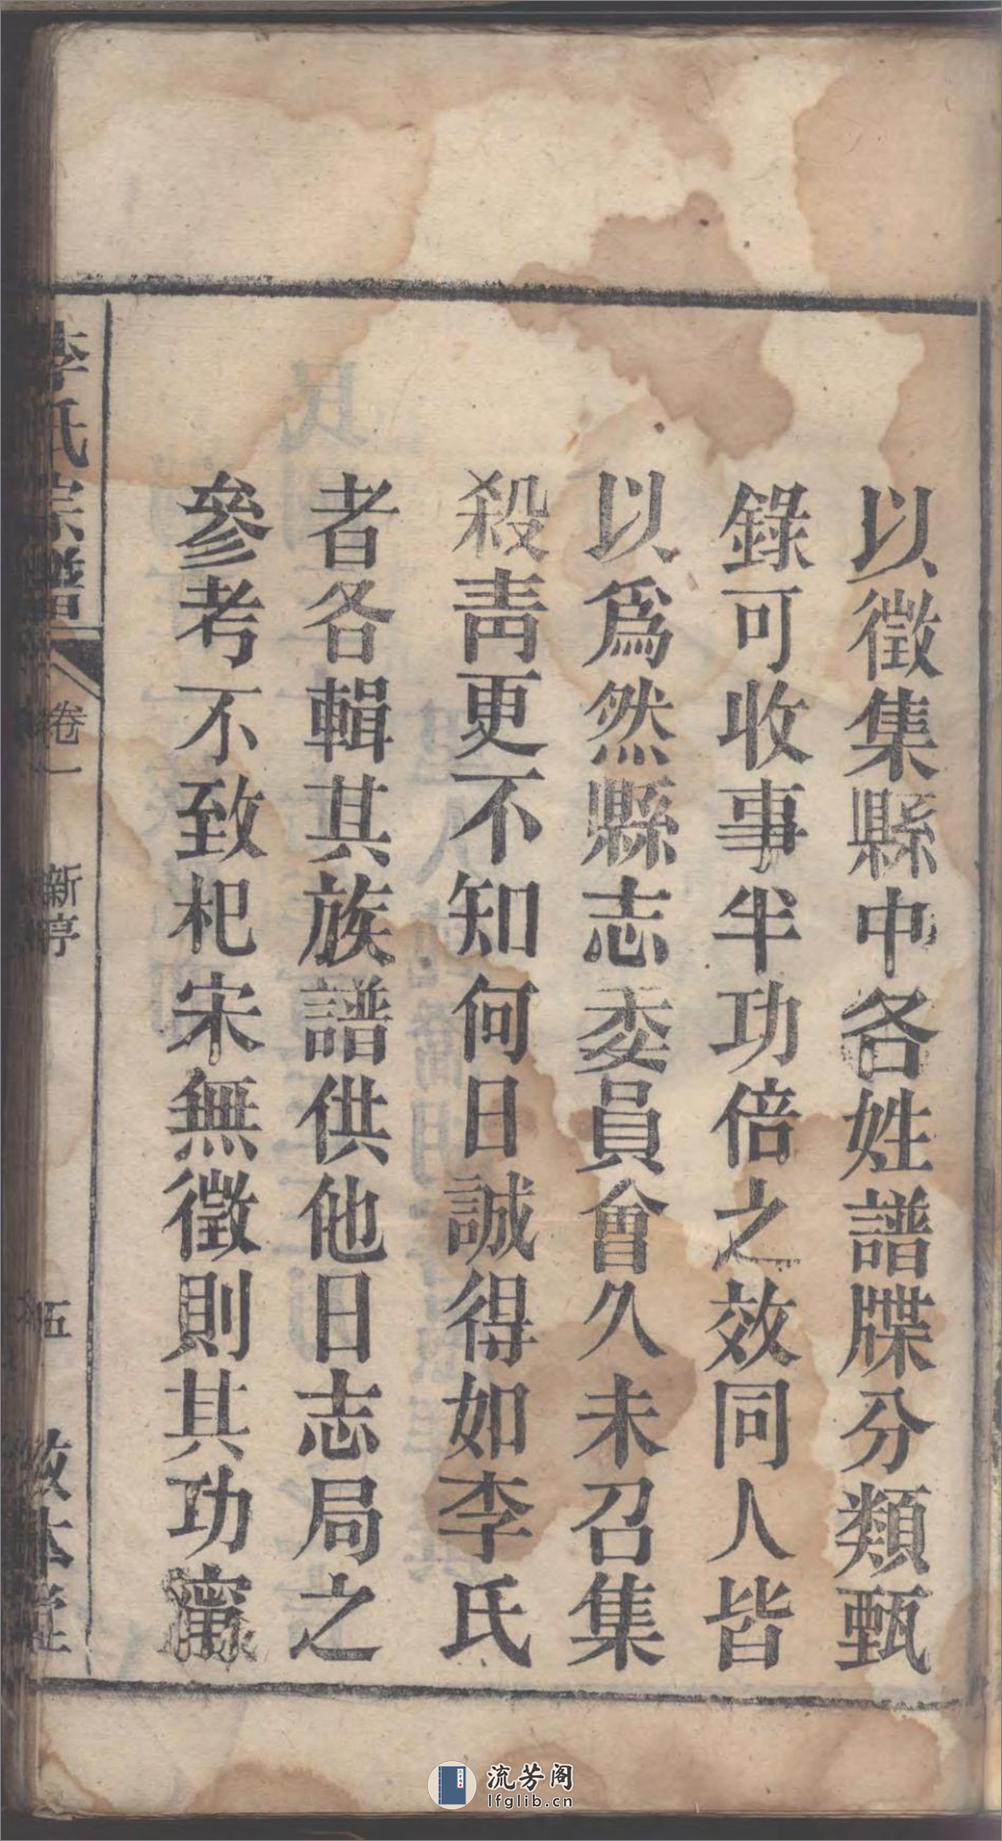 以徵集縣中各姓譜牒分類甄
錄可收事半功倍之效同人皆
以爲然縣志委員會久未召集
殺靑更不知何日誠得如李氏
者各輯其族譜供他日志局之
參考不致杞宋無徵則其功甯
李氏宗譜
卷一
新序
五
敘本堂
流芳阁
lfglib.cn